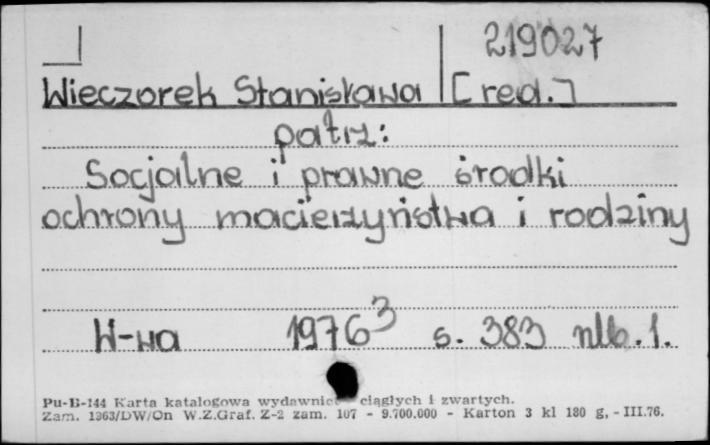 219027
Wieczorek Stanisława [red.]
patrz:
Socjalne i prawne środki
ochrony macierzyństwa i rodziny
W-wa 1976³ s. 383 nlb. 1.
Pu-B-144 Karta katalogowa wydawnict ciągłych i zwartych.
Zam. 1363/DW/On W.Z.Graf. Z-2 zam. 107 - 9.700.000 - Karton 3 kl 180 g, - III.76.